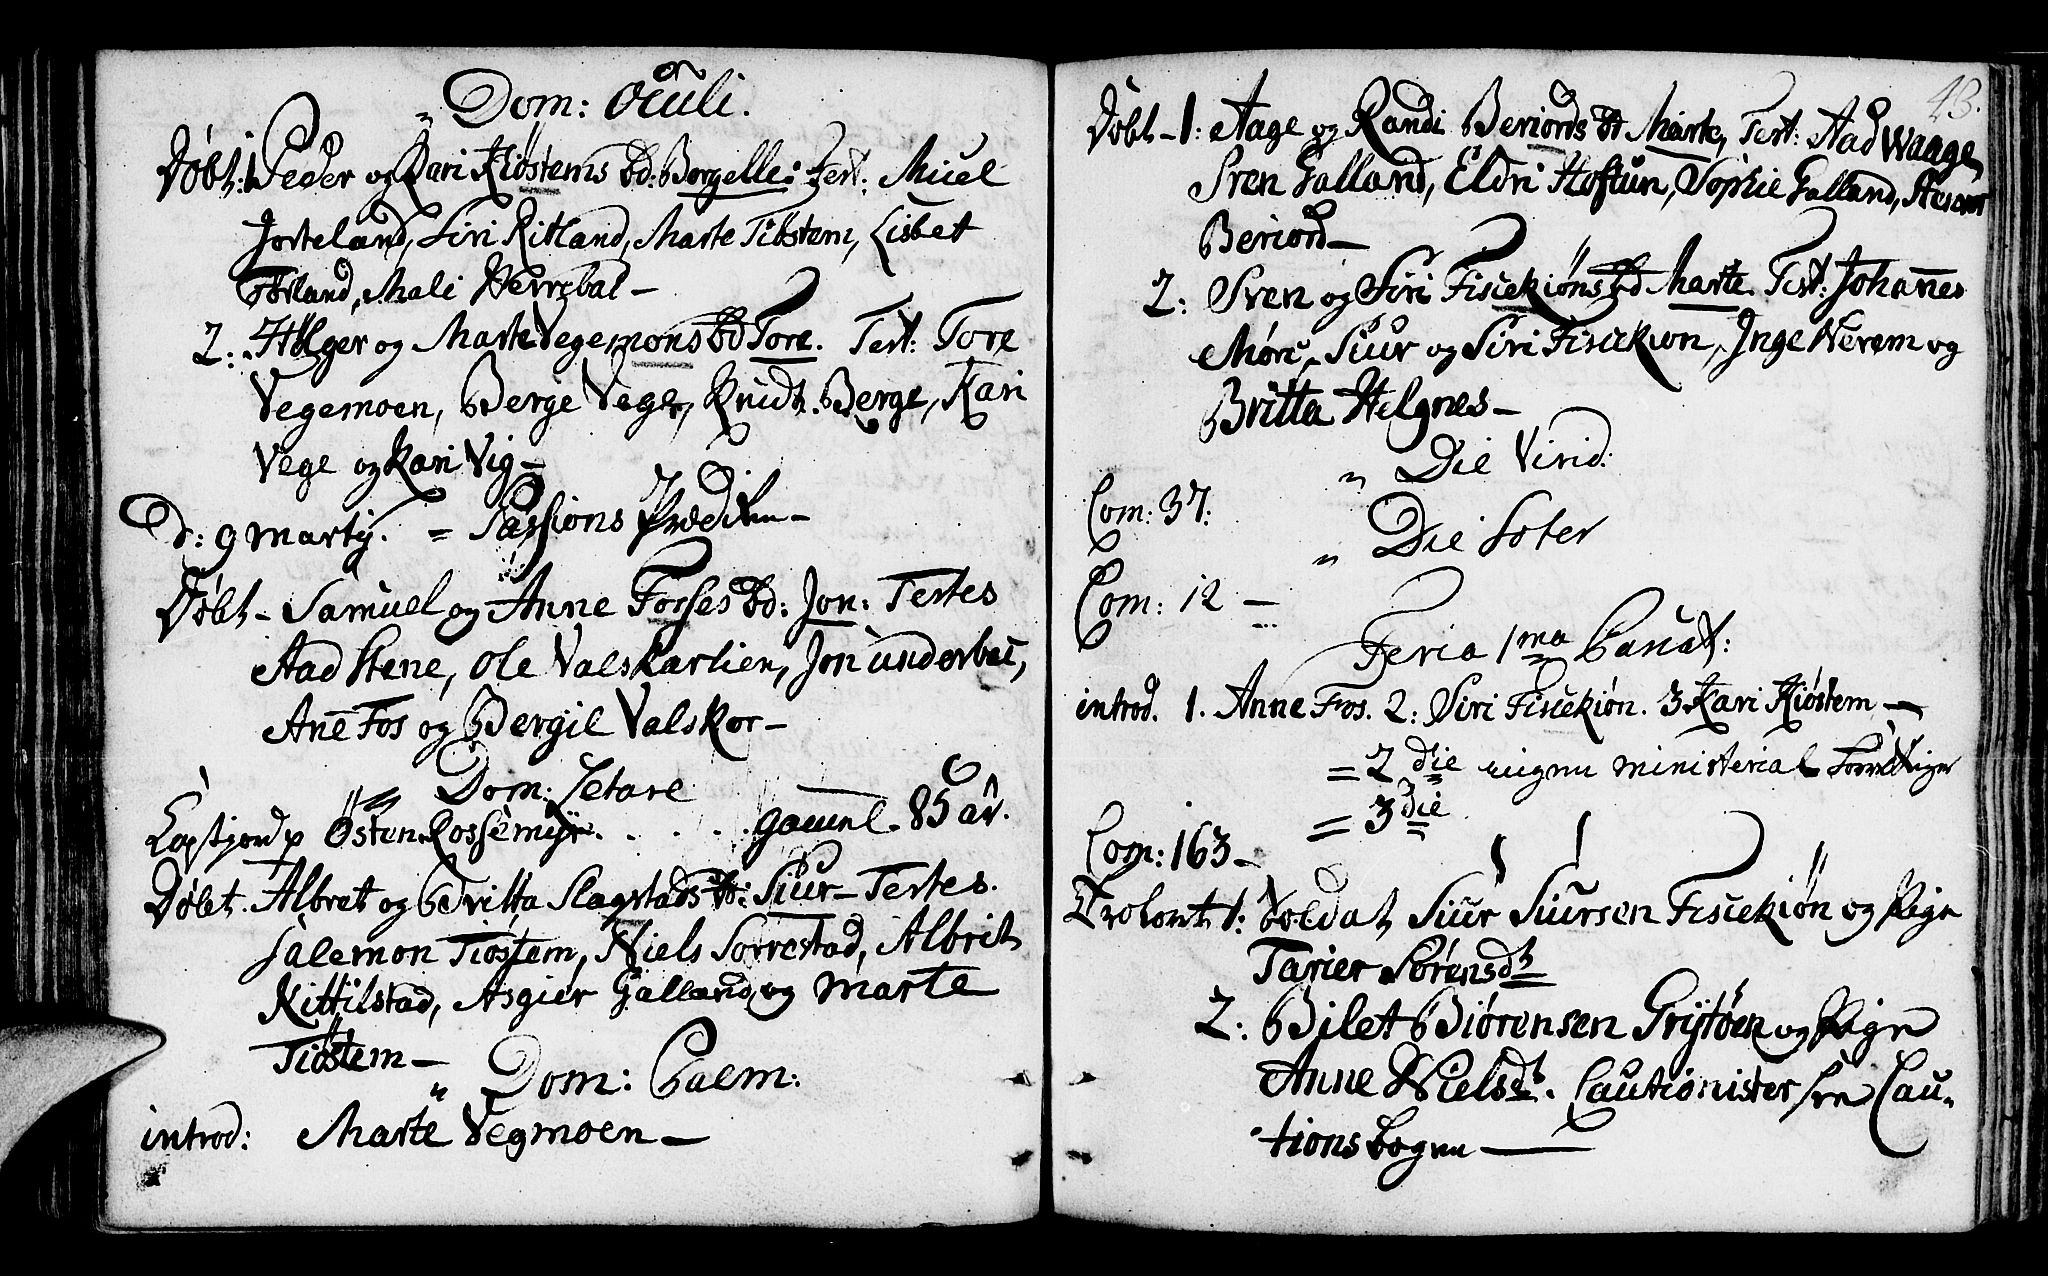 Dom: Oculi.
Døbt: 1. Peder og Kari Kiöstems bd: Borgelle: Test: Micel
Josteland, Siri Ritland, Marte Tiöstem, Lisbet
Förland, Mali Herrebal –
2: Holger og Marte Vegemons bd Tore. Test: Tore
Vegemoen, Berge Vege, Knudt Berge, Kari
Vege og Kari Vig –
D: 9 Martij. = Passions Prædiken –
Døbt – Samuel og Anne Fosses bd: Jon: Testes
Aad Stene, Ole Valskarlien, Jon underbac,
Añe Fos og Bergil Valskor –
" Dom: Letare
östen Rossemyr . . . . gaml. 85 år.
Døbt. Albret og Britta Slagstads bd: Siur – Testes.
Salemon Tiostem, Niels Sorrestad, Albrit
Kittilstad, Asgier Galland, og Marte
Tiöstem –
" Dom: Palm:
introd: Marte Vegmoen –
43.
Døbt – 1: Aage og Randi Beriords bd Marte, Test: Aad Waage,
Sven Galland, Eldri Hoftun, Sophie Galland,
Beriord –
2: Sven og Siri Fiscekiöns bd Marte. Test: Johañes
Møre, Siur og Siri Fiscekion, Inge Nerem og
Britta Helgnes –
" Die Virid:
Com: 37:
" Die Soter
Com: 12 –
Feria 1ma Pascat:
introd. 1. Anne Fos. 2: Siri Fiscekiön. 3. Kari Kiöstem –
= 2 die ingen ministerial Forretninger
= 3 die
Com: 163 –
Trolovet 1: Soldat Siur Siursen Fiscekiön og Pige
Tarier Sörensdt
2: Bilet Biörensen Grytöen og Pige
Anne Nielsdt. Cautionister see Cau-
tions bogen –